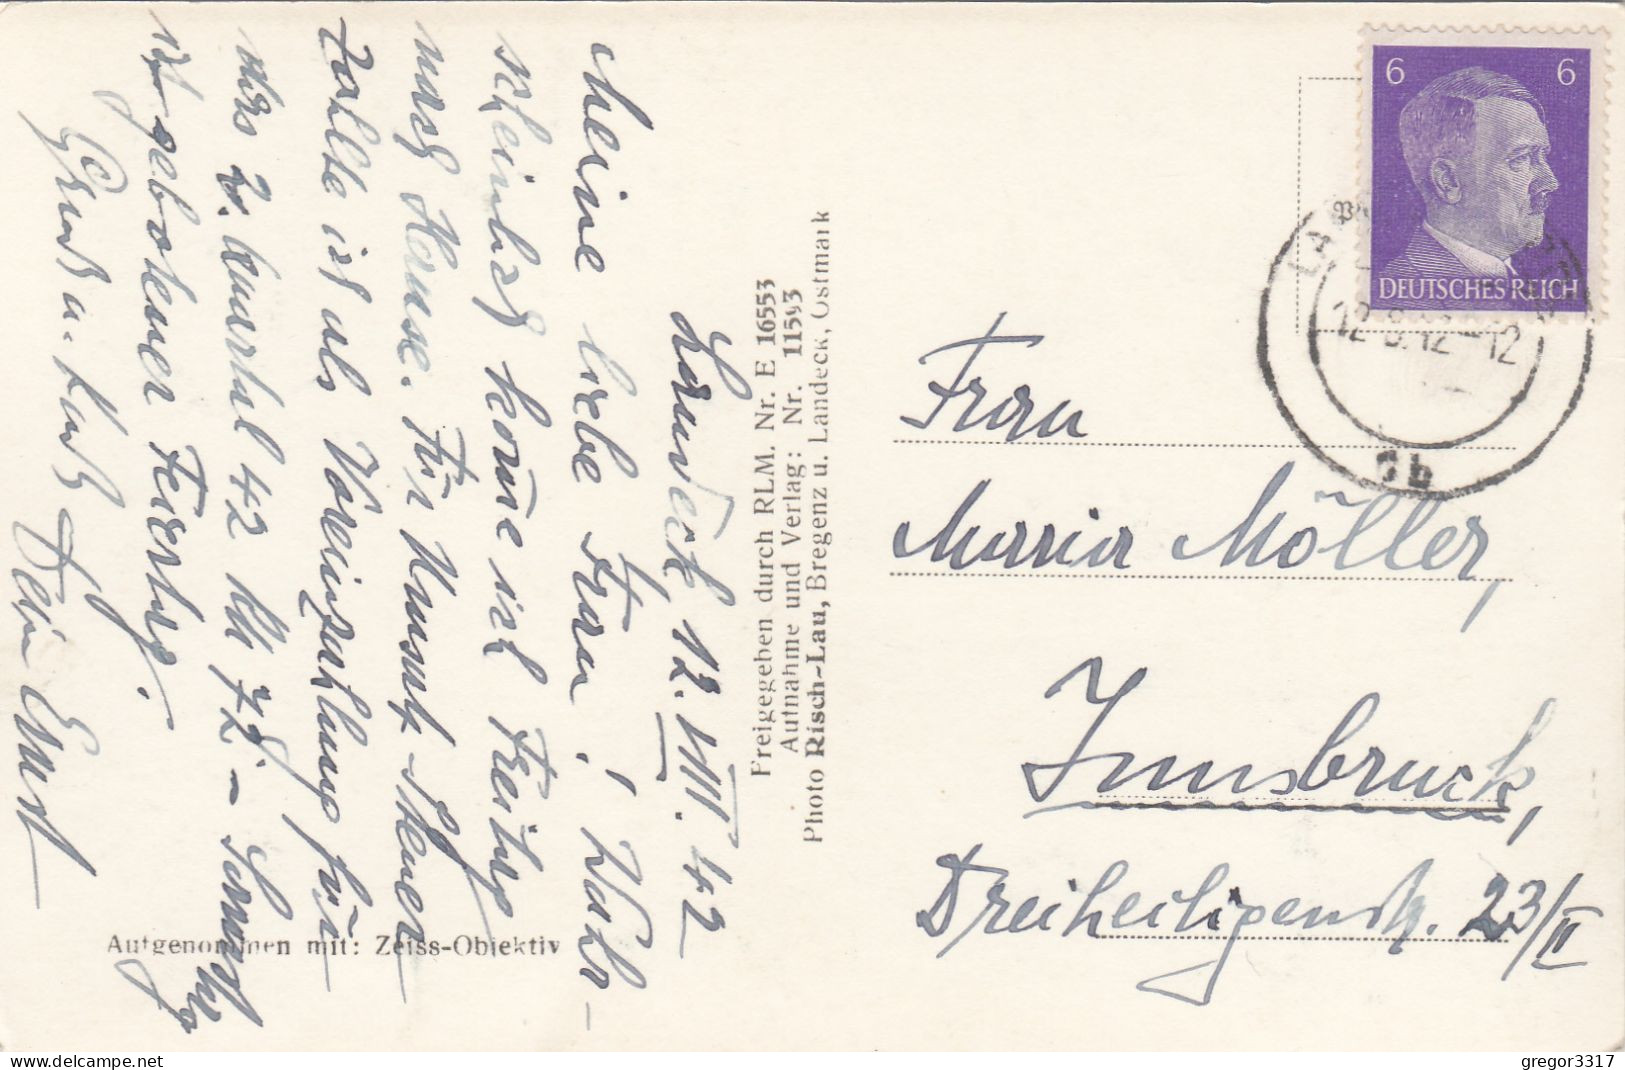 Landeck 12. VIII. 42
Meine liebe Frau! Wahr-
scheinlich komme ich Freitag
nach Hause. Für Umsatz-Steuer
zahlte ich als Voreinzahlung für
das 2. Quartal 42 RM 72,- Samstag
ist gebotener Feiertag.
Gruß u. Kuß Dein Ernst
Freigegeben durch RLM. Nr. E 16553
Aufnahme und Verlag: Nr. 11593
Photo Risch-Lau, Bregenz u. Landeck, Ostmark
Aufgenommen mit: Zeiss-Objektiv
6 6
DEUTSCHES REICH
12-8.42-12
Frau
Maria Möller,
Innsbruck,
Dreiheiligenstr. 23/II
delcampe.net
gregor3317